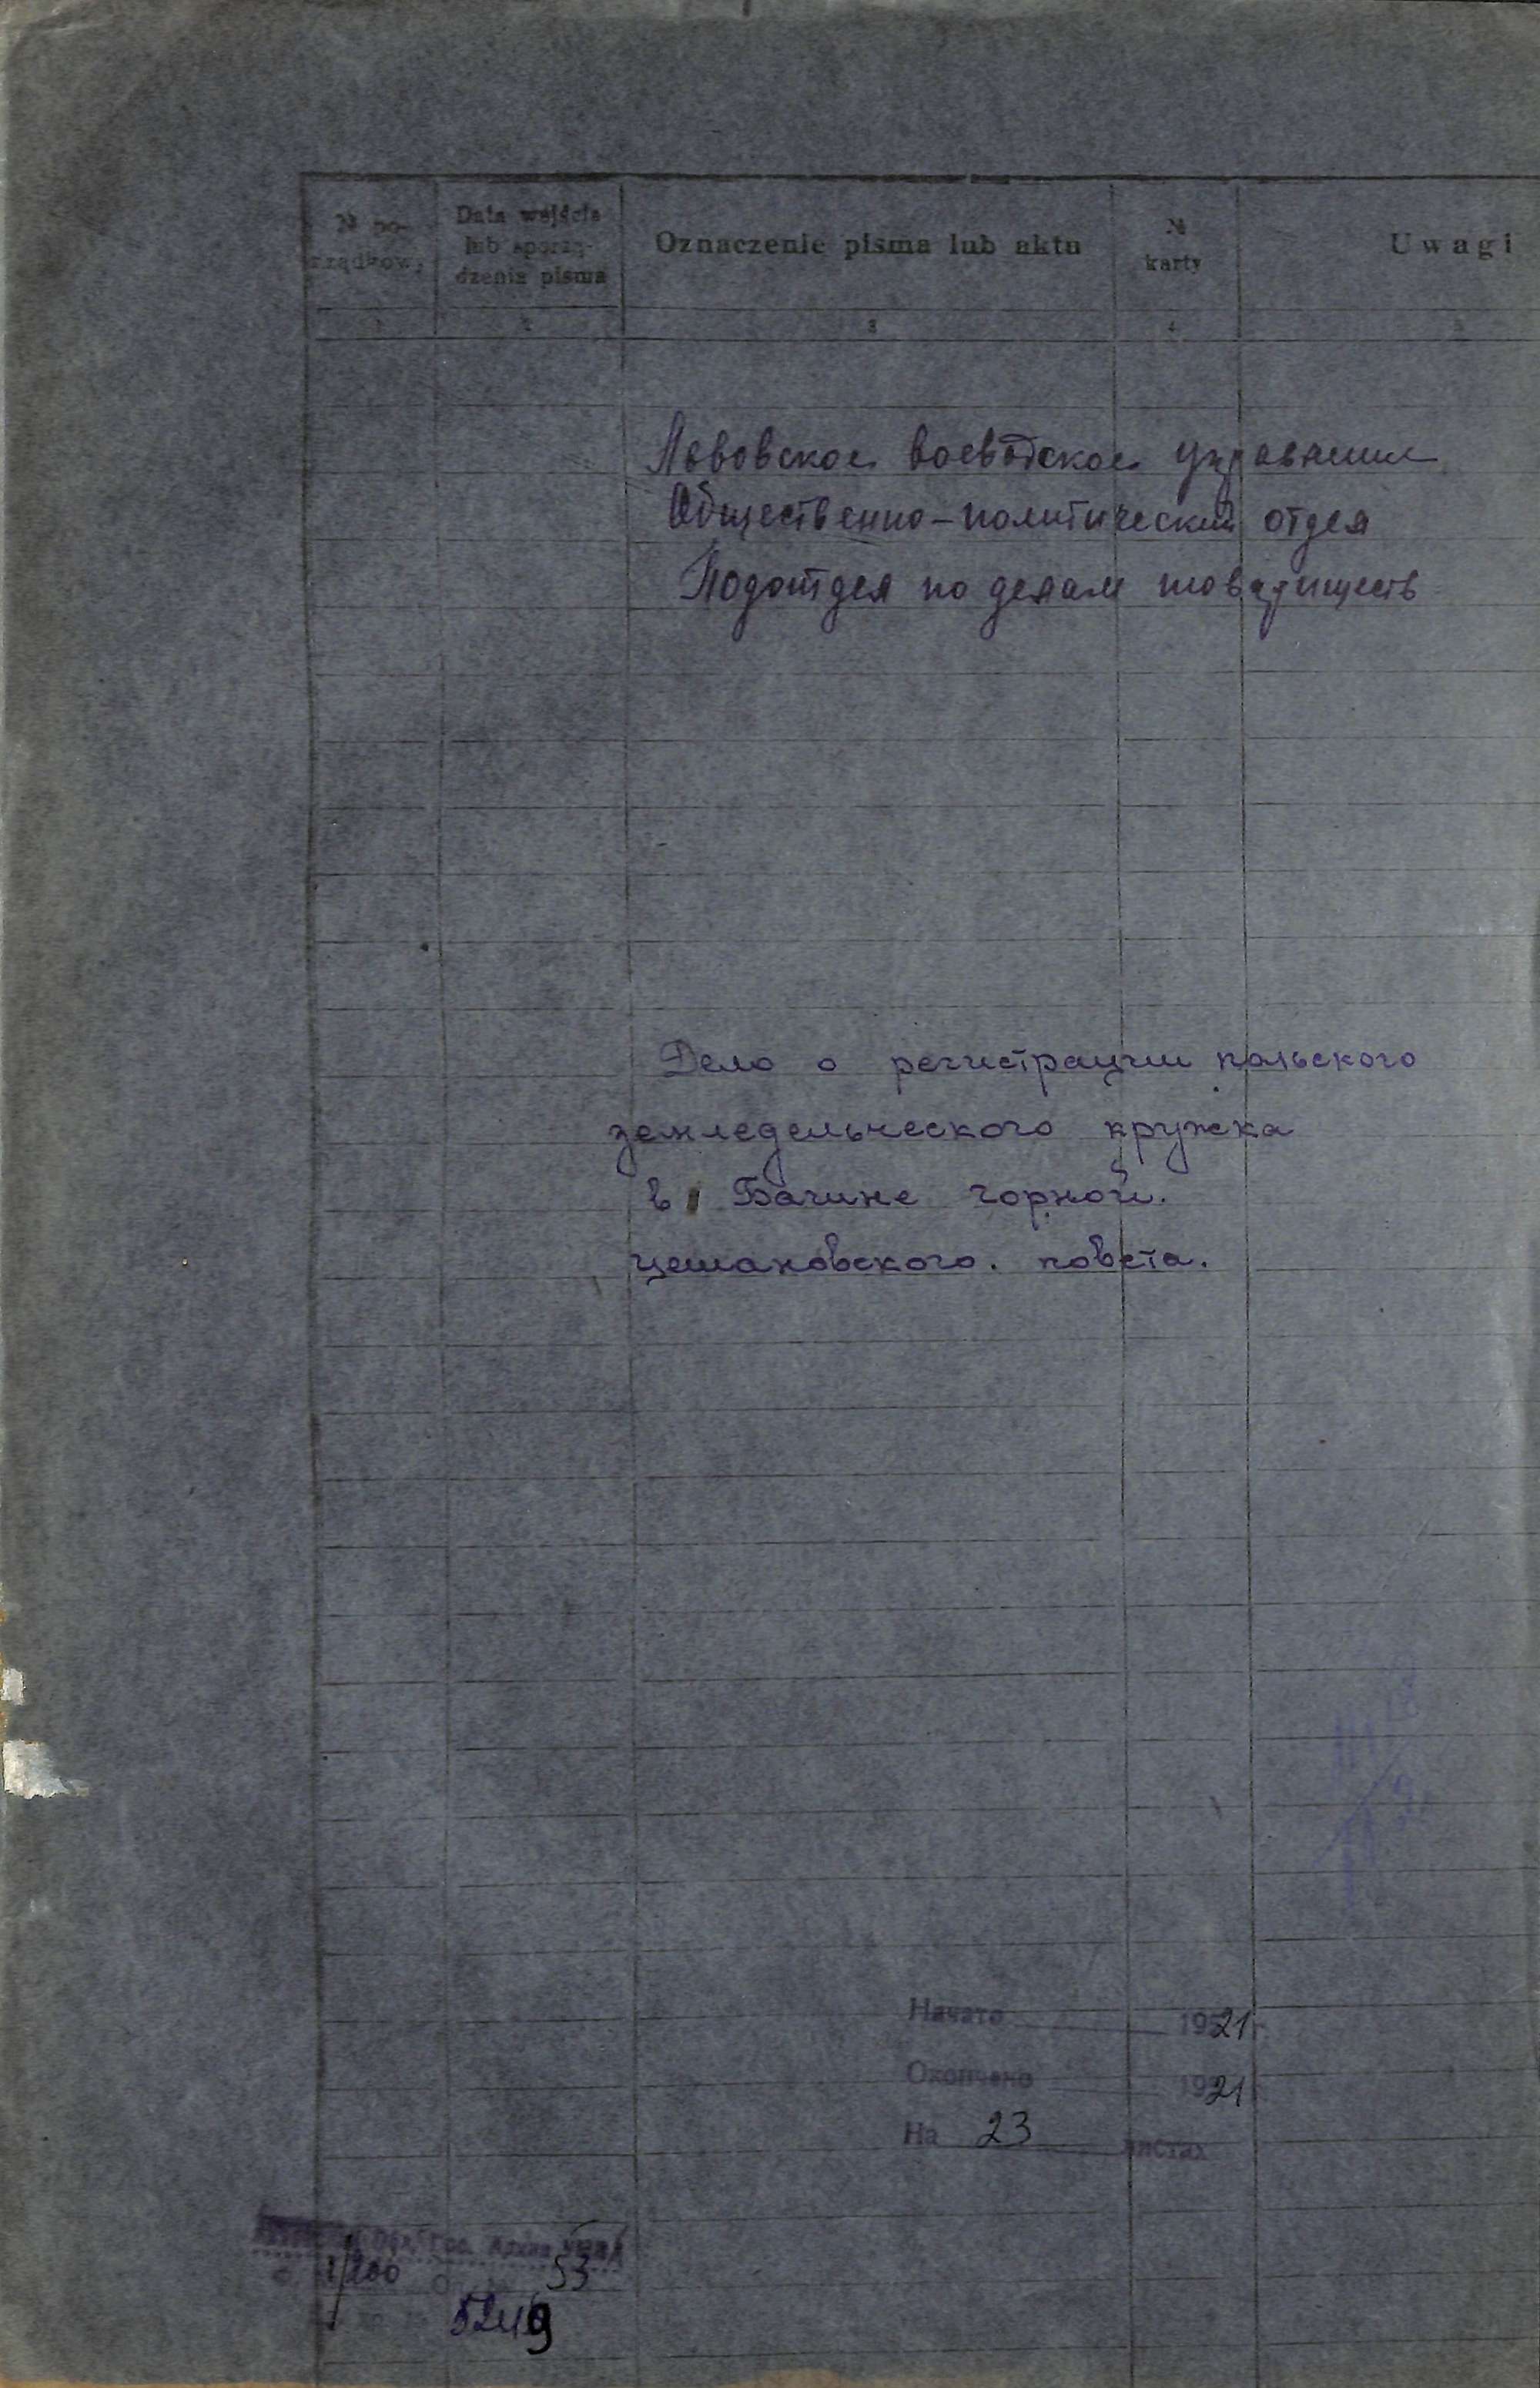 № po-
rządkowy
Data wejścia
lub sporzą-
dzenia pisma
Oznaczenie pisma lub aktu
№
karty
Uwagi
1 2 3 4 5
Львовское воеводское управление
Общественно-политический отдел
Подотдел по делам товариществ
Дело о регистрации польского
земледельческого кружка
в Бачине горной.
цешановского. повета.
Начато 1921 г.
Окончено 1921 г.
На 23 листах
Обл. Гос. Архив
1/200 53
5249